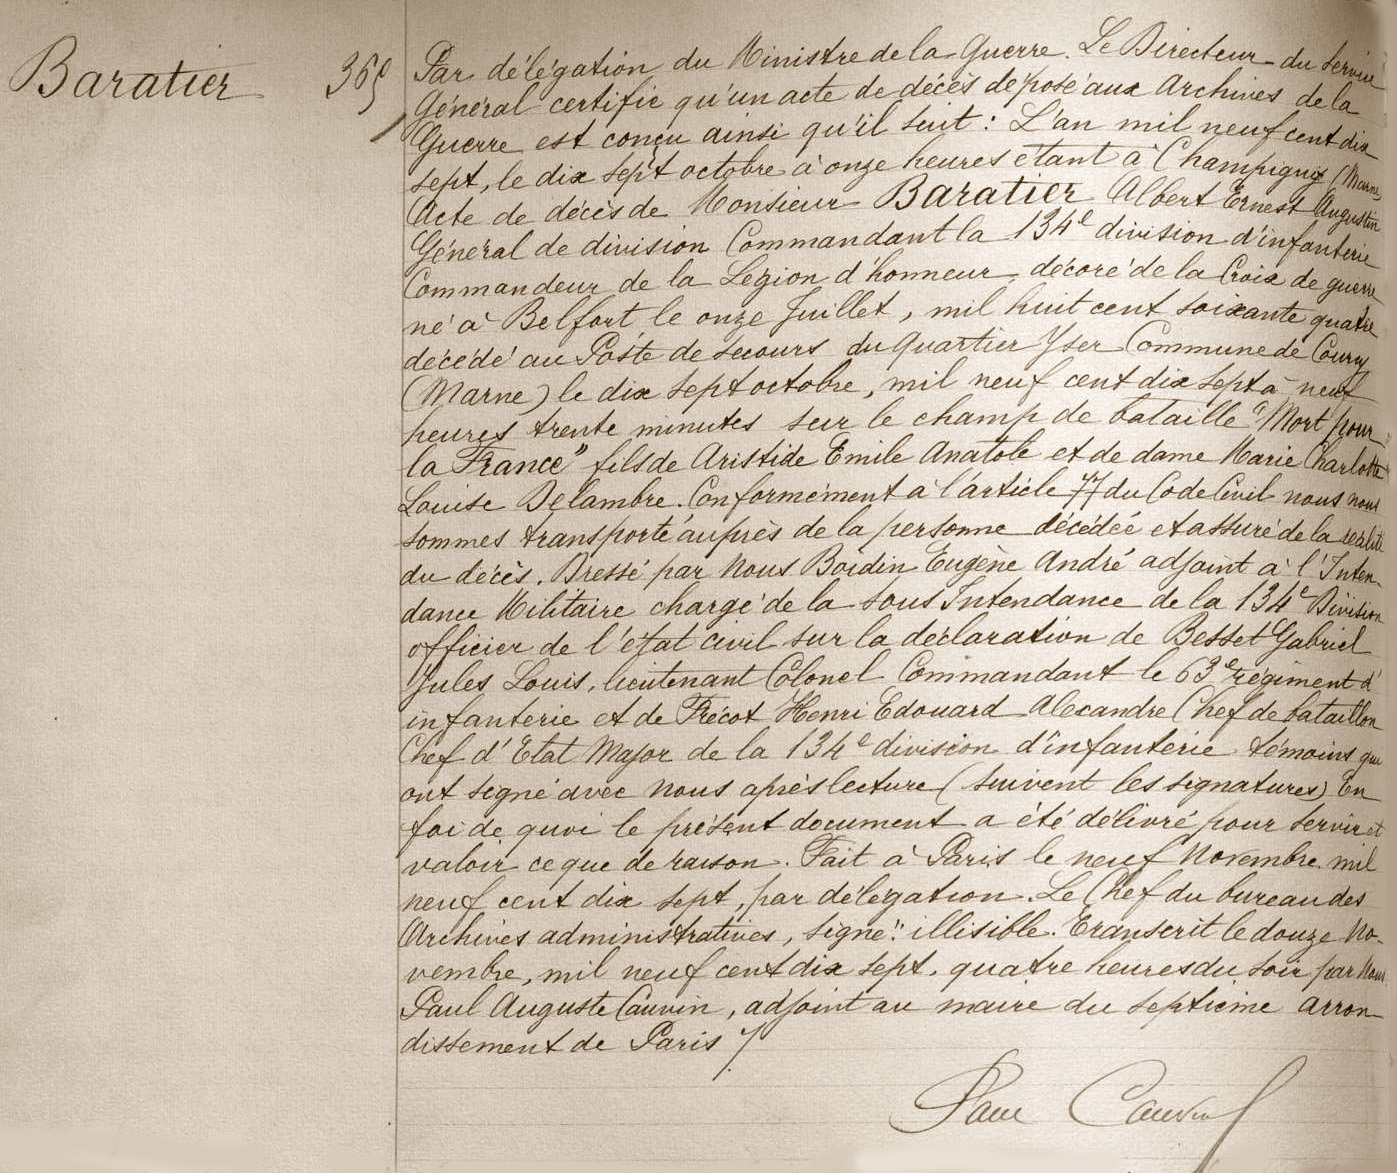 Baratier 365
Par délégation du Ministre de la Guerre. Le Directeur du Service
Général certifie qu'un acte de décès déposé aux Archives de la
Guerre est conçu ainsi qu'il suit : L'an mil neuf cent dix
sept, le dix sept octobre à onze heures étant à Champigny (Marne)
Acte de décès de Monsieur Baratier Albert Ernest Augustin
Général de division Commandant la 134e division d'infanterie
Commandeur de la Légion d'honneur, décoré de la Croix de guerre
né à Belfort le onze Juillet, mil huit cent soixante quatre
décédé au Poste de secours du Quartier Yser Commune de Courcy
(Marne) le dix sept octobre, mil neuf cent dix sept à neuf
heures trente minutes sur le champ de bataille "Mort pour
la France" fils de Aristide Emile Anatole et de dame Marie Charlotte
Louise Delambre. Conformément à l'article 77 du Code Civil nous nous
sommes transporté auprès de la personne décédée et assuré de la réalité
du décès. Dressé par Nous Boidin Eugène André adjoint à l'Inten-
dance Militaire chargé de la sous Intendance de la 134e Division
officier de l'état civil sur la déclaration de Besset Gabriel
Jules Louis, lieutenant Colonel Commandant le 63e régiment d'
infanterie et de Frécot Henri Edouard Alexandre Chef de bataillon
Chef d'Etat Major de la 134e division d'infanterie témoins qui
ont signé avec nous après lecture (suivent les signatures) En
foi de quoi le présent document a été délivré pour servir et
valoir ce que de raison. Fait à Paris le neuf Novembre mil
neuf cent dix sept, par délégation. Le Chef du bureau des
Archives administratives, signé : illisible. Transcrit le douze No-
vembre, mil neuf cent dix sept. quatre heures du soir par Nous
Paul Auguste Cauvin, adjoint au maire du septième arron-
dissement de Paris /.
Paul Cauvin